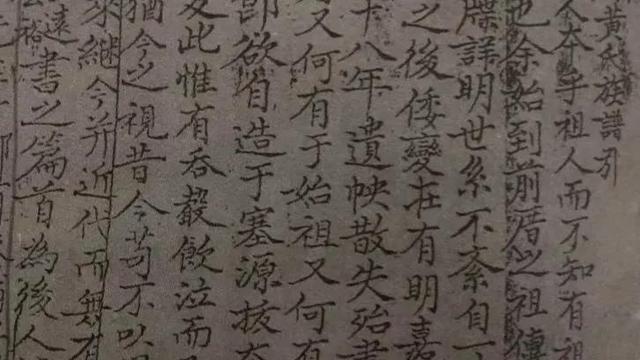 黃氏族譜引
人夲乎祖人而不知有祖
也余始到前厝之祖傳
牒詳明世系不紊自
之後倭變在有明嘉
十八年遺帙散失殆盡
又何有于始祖又何有
即欲自造于塞源拔夲
及此惟有吞聲飲泣而
猶今之視昔今茍不以
求継今并近代而無有
遠裕書之篇首為後人